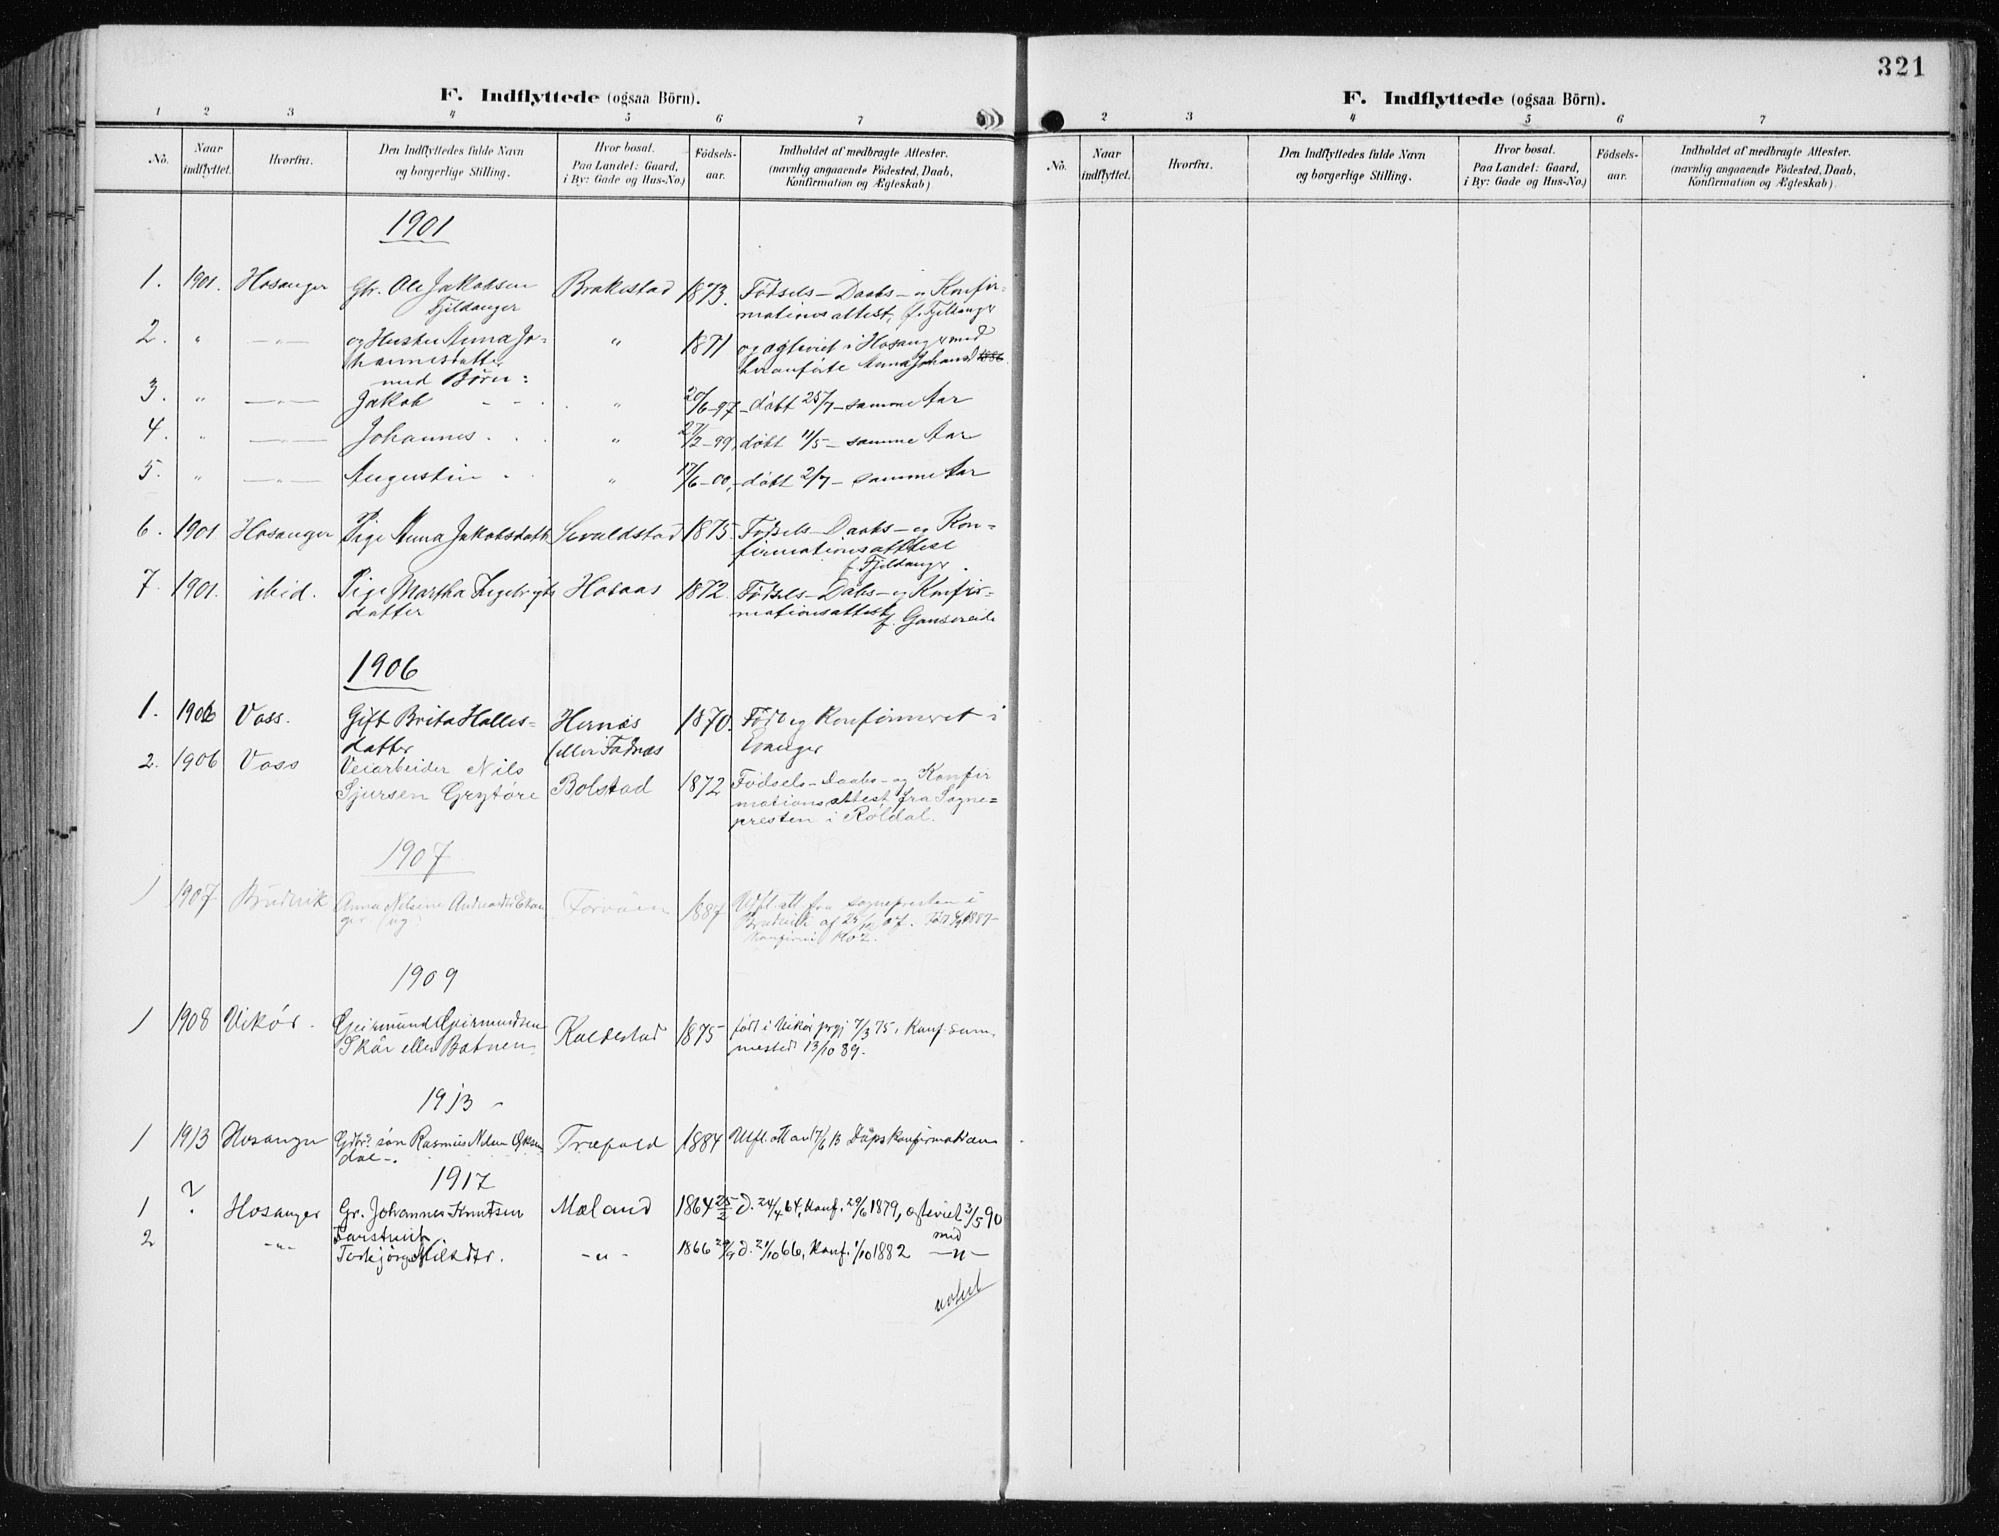 321
F. Indflyttede (ogsaa Börn).
1 2 3 4 5 6 7
No. Naar indflyttet. Hvorfra. Den Indflyttedes fulde Navn og borgerlige Stilling. Hvor bosat. Paa Landet: Gaard, i By: Gade og Hus-No.) Födsels-aar. Indholdet af medbragte Attester. (navnlig angaaende Födested, Daab, Konfirmation og Ægteskab)
1901
1. 1901. Hosanger Gbr. Ole Jakobsen Brakestad 1873. Fødsels- Daabs- og Konfir-
Fjeldanger mationsattest, f. Fjeldanger
2. " -"- og Hustru Anna Jo- " 1871 og ægteviet i Hosanger med
hannesdatter heranførte Anna Johansd
med Børn:
3. " -"- Jakob " 20/6-97 - døbt 25/7 - samme Aar
4. " -"- Johannes " 27/2-99, døbt 11/5 - samme Aar
5. " -"- Augustin " 17/6-00, - døbt 2/7 - samme Aar
6. 1901 Hosanger Pige Anna Jakobsdatt 1875. Fødsels- Daabs- og Kon-
firmationsattest
f. Fjeldanger.
7. 1901. ibid. Pige Martha Ingebrigts Hosaas 1872 Fødsels- Dabs- og Konfir-
datter mationsattest f.
1906
1. 1906 Voss. Gift Brita Halles- Hernæs 1870. Født og Konfirmeret i
datter (eller Fadnæs Evanger
2. 1906 Voss Veiarbeider Nils
Sjursen Grytøre Bolstad 1872 Fødsels- Daabs- og Konfir
mationsattest fra Sogne-
presten i Røldal.
1907
1 1907 Brudvik Anna Nilsine 1887 Udfl. att fra sognepresten i
Brudvik af 07. Født 1887-
1902.
1909
1 1908 Vikör. Geirmund Geirmundsen Kaldestad 1875 født i Vikör prgj 7/3 75, Konf. sam-
Skår eller Botnen mested 13/10 89.
1913
1 1913 Hosanger Gdbr. søn Rasmus Nilsen Øksen Træfald 1884 Utfl. att av 17/6 13 Dåps Konfirmation
dal -.
1917
1 ? Hosanger Gr. Johannes Knutsen Mæland 1864 25/2 d. 24/4 64, Konf. 29/6 1879, ægteviet 3/5 90
med
2 -"- Torbjørg Nilsdtr. -"- 1866 29/9 d. 21/10 66, Konf. 1/10 1882 -"-
F. Indflyttede (ogsaa Börn).
2 3 4 5 6 7
No. Naar indflyttet. Hvorfra. Den Indflyttedes fulde Navn og borgerlige Stilling. Hvor bosat. Paa Landet: Gaard, i By: Gade og Hus-No.) Födsels-aar. Indholdet af medbragte Attester. (navnlig angaaende Födested, Daab, Konfirmation og Ægteskab).